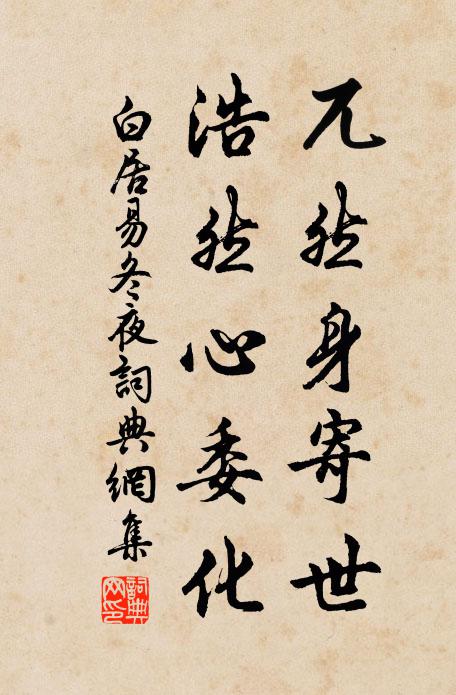 兀然身寄世
浩然心委化
白居易冬夜詞典網集
詞典網印